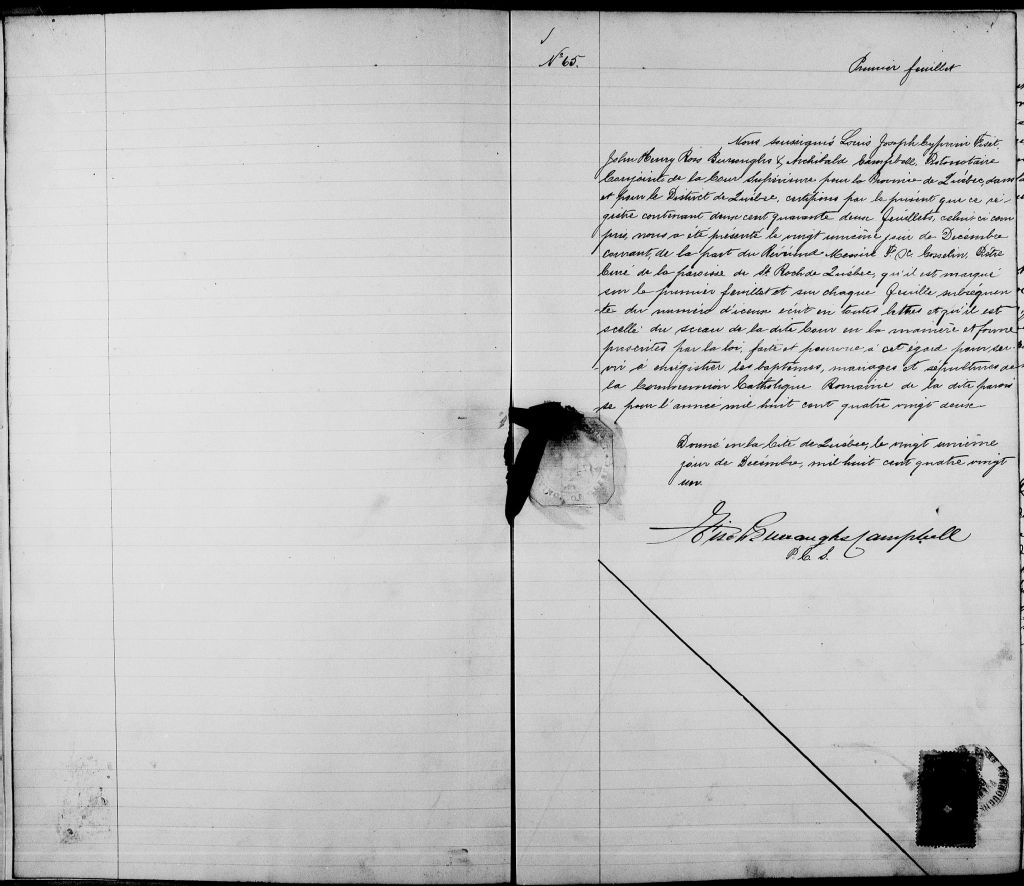 No 65.
Premier feuillet
Nous soussignés Louis Joseph Cyprien Fiset,
John Henry Ross Burroughs & Archibald Campbell, Protonotaire
Conjoint de la Cour Supérieure pour la Province de Québec, dans
et pour le District de Québec, certifions par le présent que ce re-
gistre contenant deux cent quarante deux feuillets, celui ci com
pris, nous a été présenté le vingt unième jour de Décembre
courant, de la part du Révérend Messire F. X. Gosselin, Ptre
Curé de la paroisse de St Roch de Québec, qu'il est marqué
sur le premier feuillet et sur chaque feuille subséquen-
te du numéro d'iceux écrit en toutes lettres et qu'il est
scellé du sceau de la dite Cour en la manière et forme
prescrites par la loi, faite et pourvue à cet égard pour ser-
vir à enregistrer les baptêmes, mariages et sépultures de
la Communion Catholique Romaine de la dite parois
se pour l'année mil huit cent quatre vingt deux.
Donné en la Cité de Québec, le vingt unième
jour de Décembre, mil huit cent quatre vingt
un.
Fiset Burroughs Campbell
P. C. S.